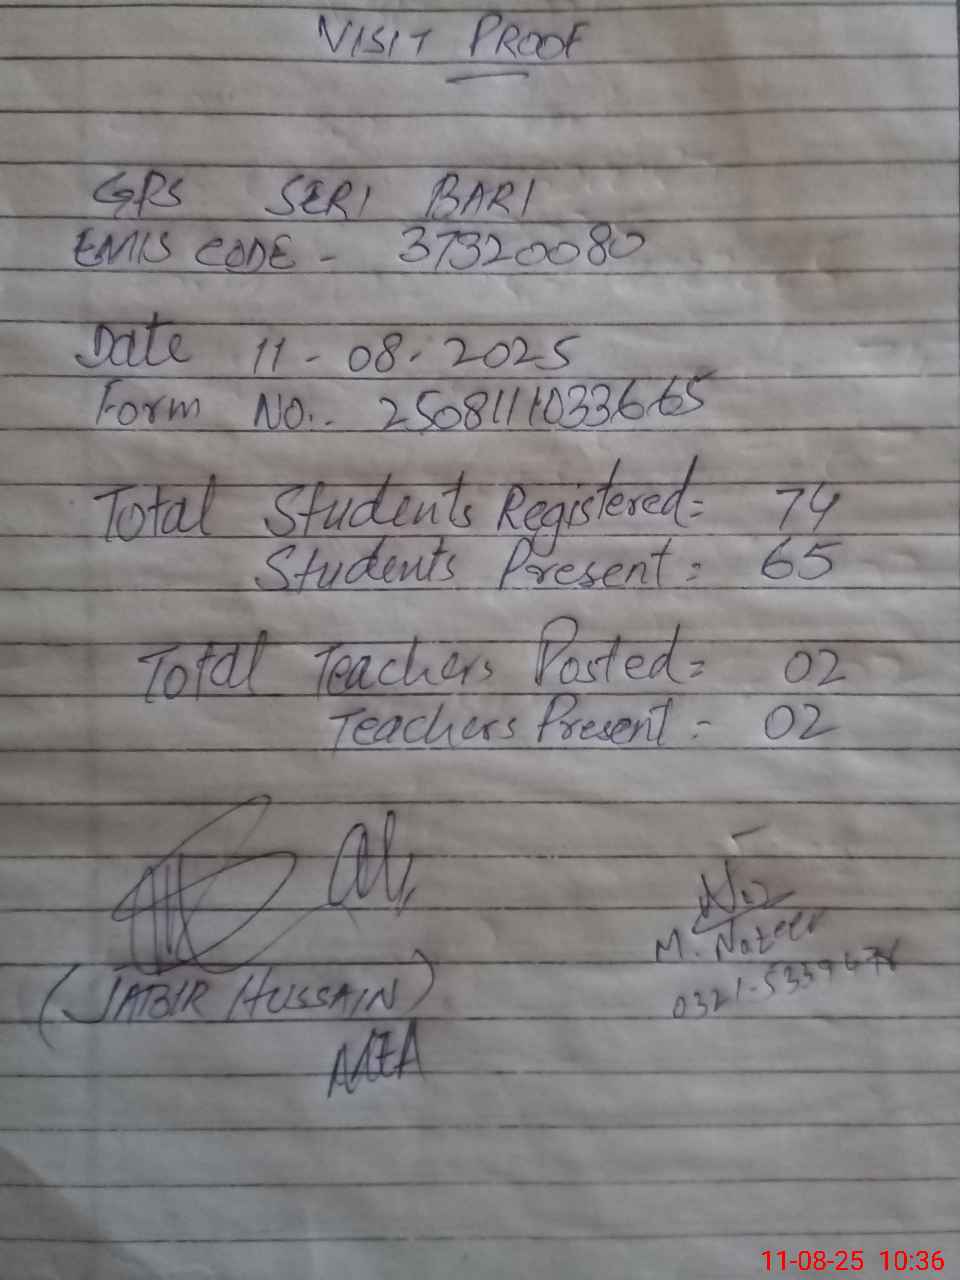 VISIT PROOF
GPS SERI BARI
EMIS CODE - 37320080
Date 11-08-2025
Form No:- 2508111033665
Total Students Registered= 74
Students Present= 65
Total Teachers Posted= 02
Teachers Present- 02
(JABIR HUSSAIN)
MEA
M. Nazeer
0321-5339476
11-08-25 10:36